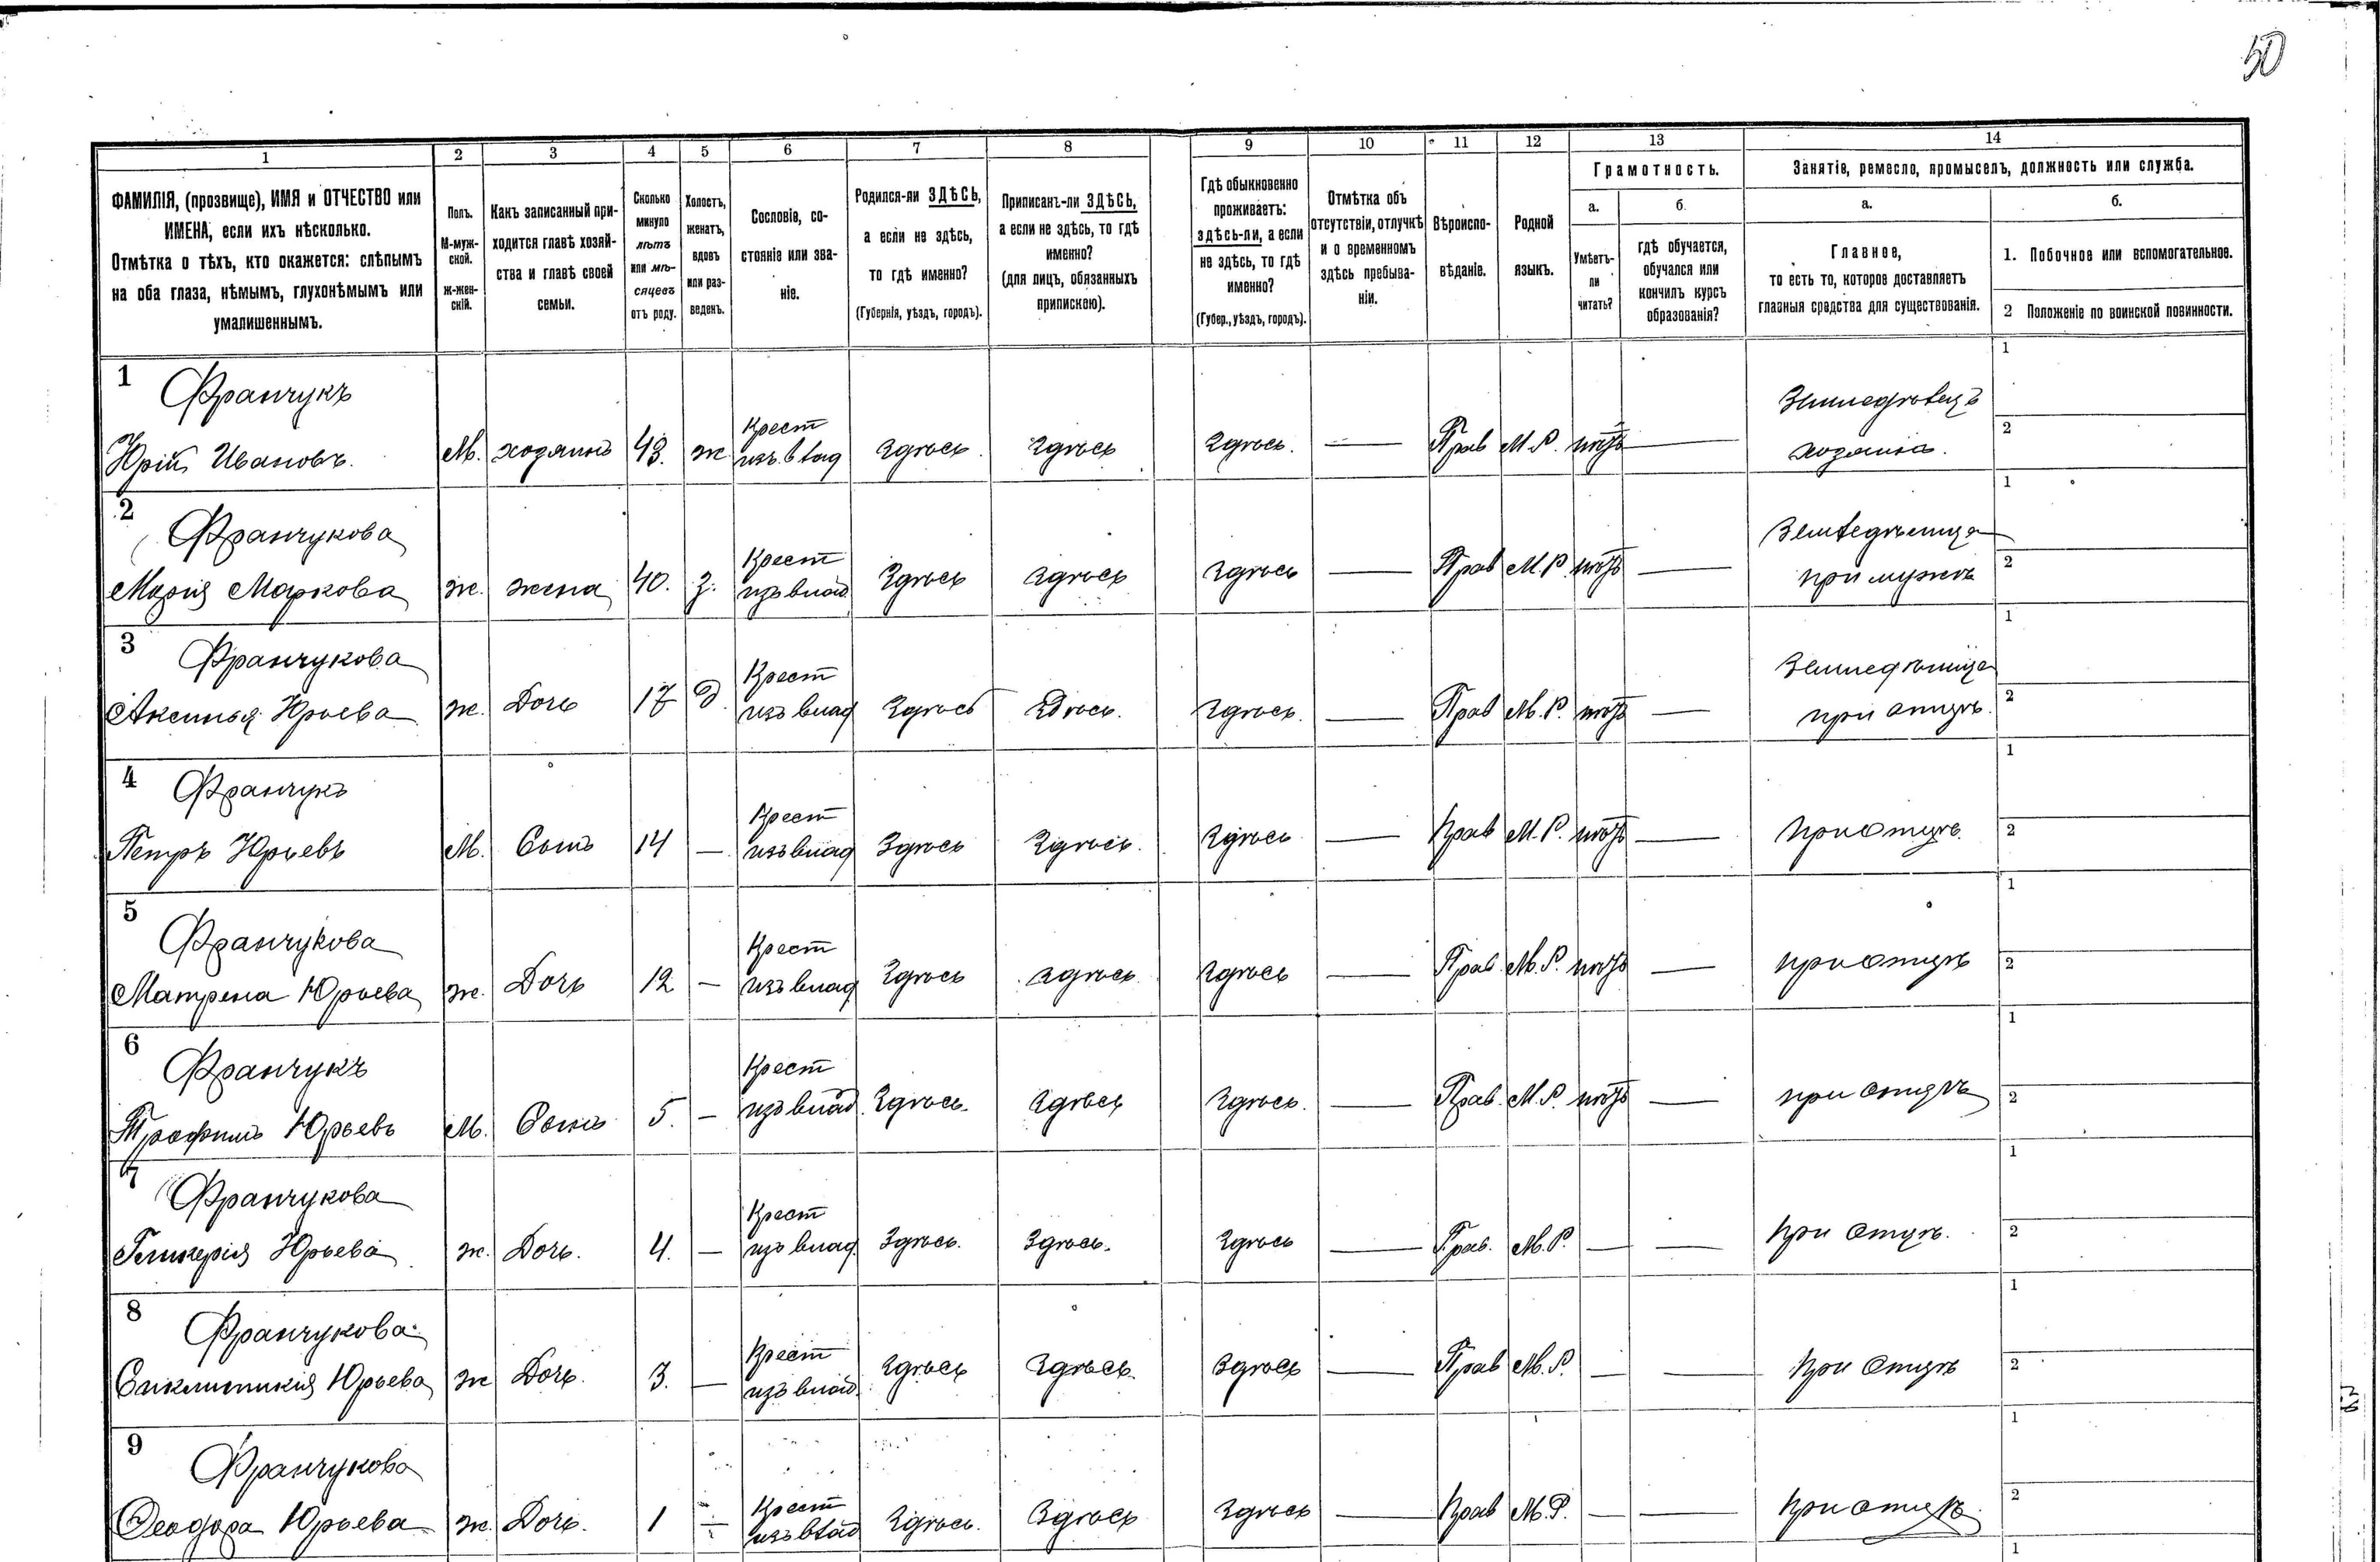 50
1 2 3 4 5 6 7 8 9 10 11 12 13 14
ФАМИЛІЯ, (прозвище), ИМЯ и ОТЧЕСТВО или
ИМЕНА, если ихъ нѣсколько.
Отмѣтка о тѣхъ, кто окажется: слѣпымъ
на оба глаза, нѣмымъ, глухонѣмымъ или
умалишеннымъ.
Полъ.
М-муж-
ской.
ж-жен-
скій.
Какъ записанный при-
ходится главѣ хозяй-
ства и главѣ своей
семьи.
Сколько
минуло
лѣтъ
или мѣ-
сяцевъ
отъ роду.
Холостъ,
женатъ,
вдовъ
или раз-
веденъ.
Сословіе, со-
стояніе или зва-
ніе.
Родился-ли ЗДѢСЬ,
а если не здѣсь,
то гдѣ именно?
(Губернія, уѣздъ, городъ).
Приписанъ-ли ЗДѢСЬ,
а если не здѣсь, то гдѣ
именно?
(для лицъ, обязанныхъ
припискою).
Гдѣ обыкновенно
проживаетъ:
здѣсь-ли, а если
не здѣсь, то гдѣ
именно?
(Губер., уѣздъ, городъ).
Отмѣтка объ
отсутствіи, отлучкѣ
и о временномъ
здѣсь пребыва-
ніи.
Вѣроиспо-
вѣданіе.
Родной
языкъ.
Грамотность.
а.
Умѣетъ-
ли
читать?
б.
гдѣ обучается,
обучался или
кончилъ курсъ
образованія?
Занятіе, ремесло, промыселъ, должность или служба.
а.
Главное,
то есть то, которое доставляетъ
главныя средства для существованія.
б.
1. Побочное или вспомогательное.
2 Положеніе по воинской повинности.
1 Франчукъ
Юрій Ивановъ. М. хозяинъ 43. ж Крест изъ влад Здѣсь. Здѣсь Здѣсь. — Прав М.Р. нѣтъ — Земледѣлецъ хозяинъ. 1 2
2 Франчукова
Марія Маркова ж. жена 40. з. Крест изъ влад Здѣсь Здѣсь Здѣсь — Прав М.Р. нѣтъ — Земледѣлица при мужѣ 1 2
3 Франчукова
Аксинья Юрьева ж. Дочь 17 д. Крест изъ влад Здѣсь Здѣсь. Здѣсь. — Прав М.Р. нѣтъ — Земледѣлица при отцѣ. 1 2
4 Франчукъ
Петръ Юрьевъ М. Сынъ 14 — Крест изъ влад Здѣсь Здѣсь. Здѣсь — Прав М.Р. нѣтъ — При отцѣ. 1 2
5 Франчукова
Матрена Юрьева ж. Дочь 12 — Крест изъ влад Здѣсь Здѣсь. Здѣсь — Прав. М.Р. нѣтъ — при отцѣ 1 2
6 Франчукъ
Трофимъ Юрьевъ М. Сынъ 5. — Крест изъ влад Здѣсь. Здѣсь Здѣсь. — Прав. М.Р. нѣтъ — при отцѣ 1 2
7 Франчукова
Гликерія Юрьева ж. Дочь. 4. — Крест изъ влад. Здѣсь. Здѣсь. Здѣсь — Прав. М.Р. — — При отцѣ. 1 2
8 Франчукова
Юрьева ж Дочь. 3. — Крест изъ влад. Здѣсь Здѣсь. Здѣсь — Прав М.Р. — — При отцѣ 1 2
9 Франчукова
Феодора Юрьева ж. Дочь. 1 — Крест изъ влад Здѣсь. Здѣсь Здѣсь — Прав М.Р. — — При отцѣ. 1 2
1